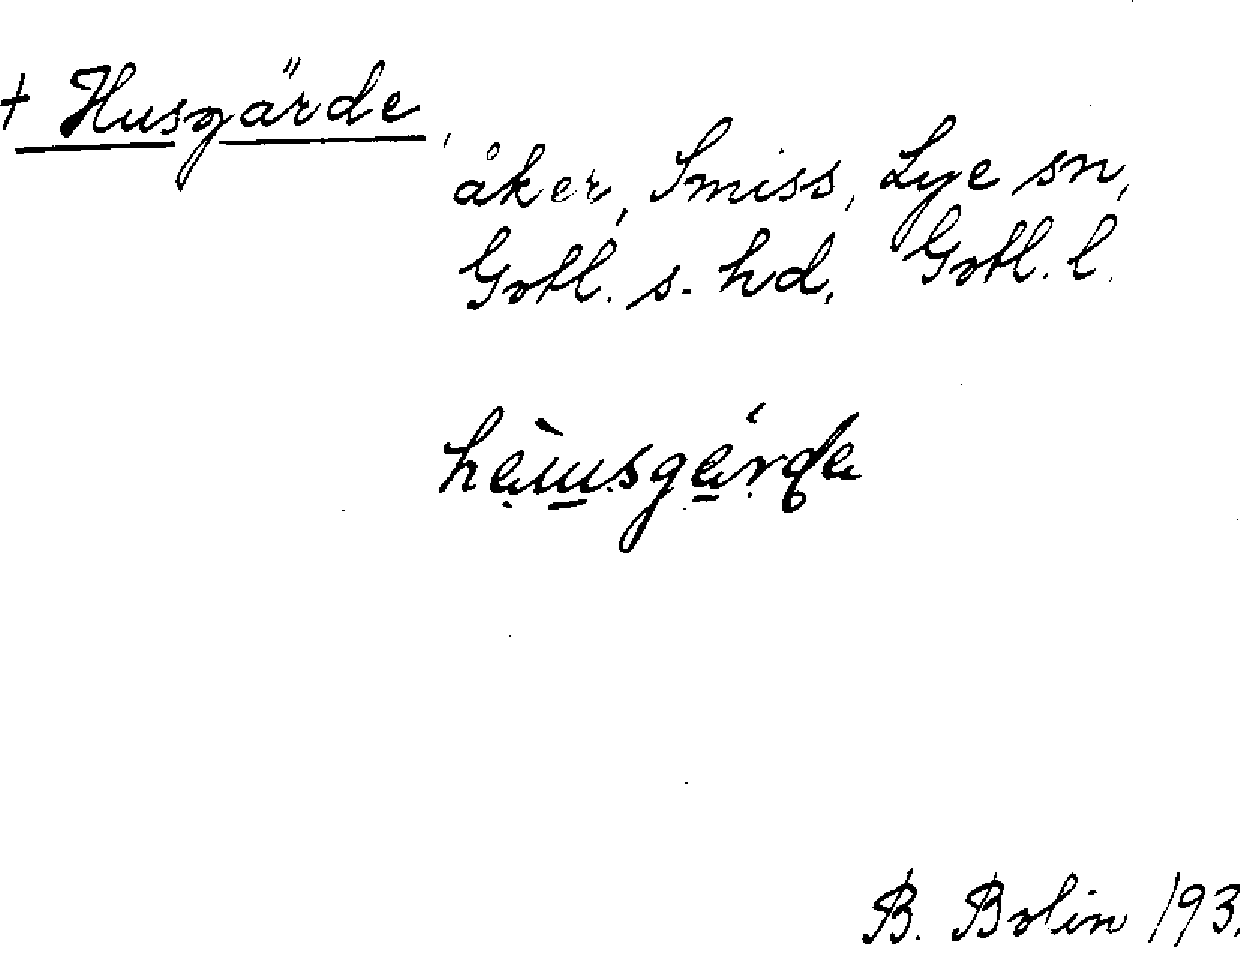 + Husgärde,
åker, Smiss, Lye sn,
Gotl. s. hd, Gotl. l.
B. Bolin 193.